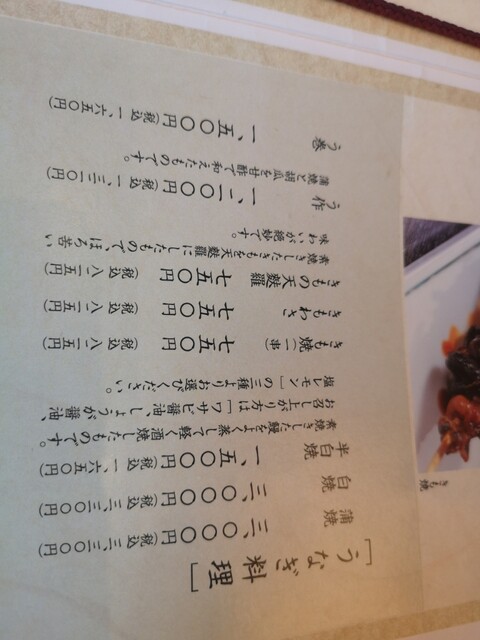 ［うなぎ料理］
蒲焼 三、〇〇〇円 (税込 三、三〇〇円)
白焼 三、〇〇〇円 (税込 三、三〇〇円)
半白焼 一、五〇〇円 (税込 一、六五〇円)
素焼きした鰻をよく蒸して軽く酒焼したものです。
お召し上がり方は［ワサビ醤油、しょうが醤油、
塩レモン］の三種よりお選びください。
きも焼(一串) 七五〇円 (税込 八二五円)
きもわさ 七五〇円 (税込 八二五円)
きもの天麩羅 七五〇円 (税込 八二五円)
素焼きしたきもを天麩羅にしたもので、ほろ苦い
味わいが絶妙です。
う作 一、二〇〇円 (税込 一、三二〇円)
蒲焼と胡瓜を甘酢で和えたものです。
う巻 一、五〇〇円 (税込 一、六五〇円)
きも焼